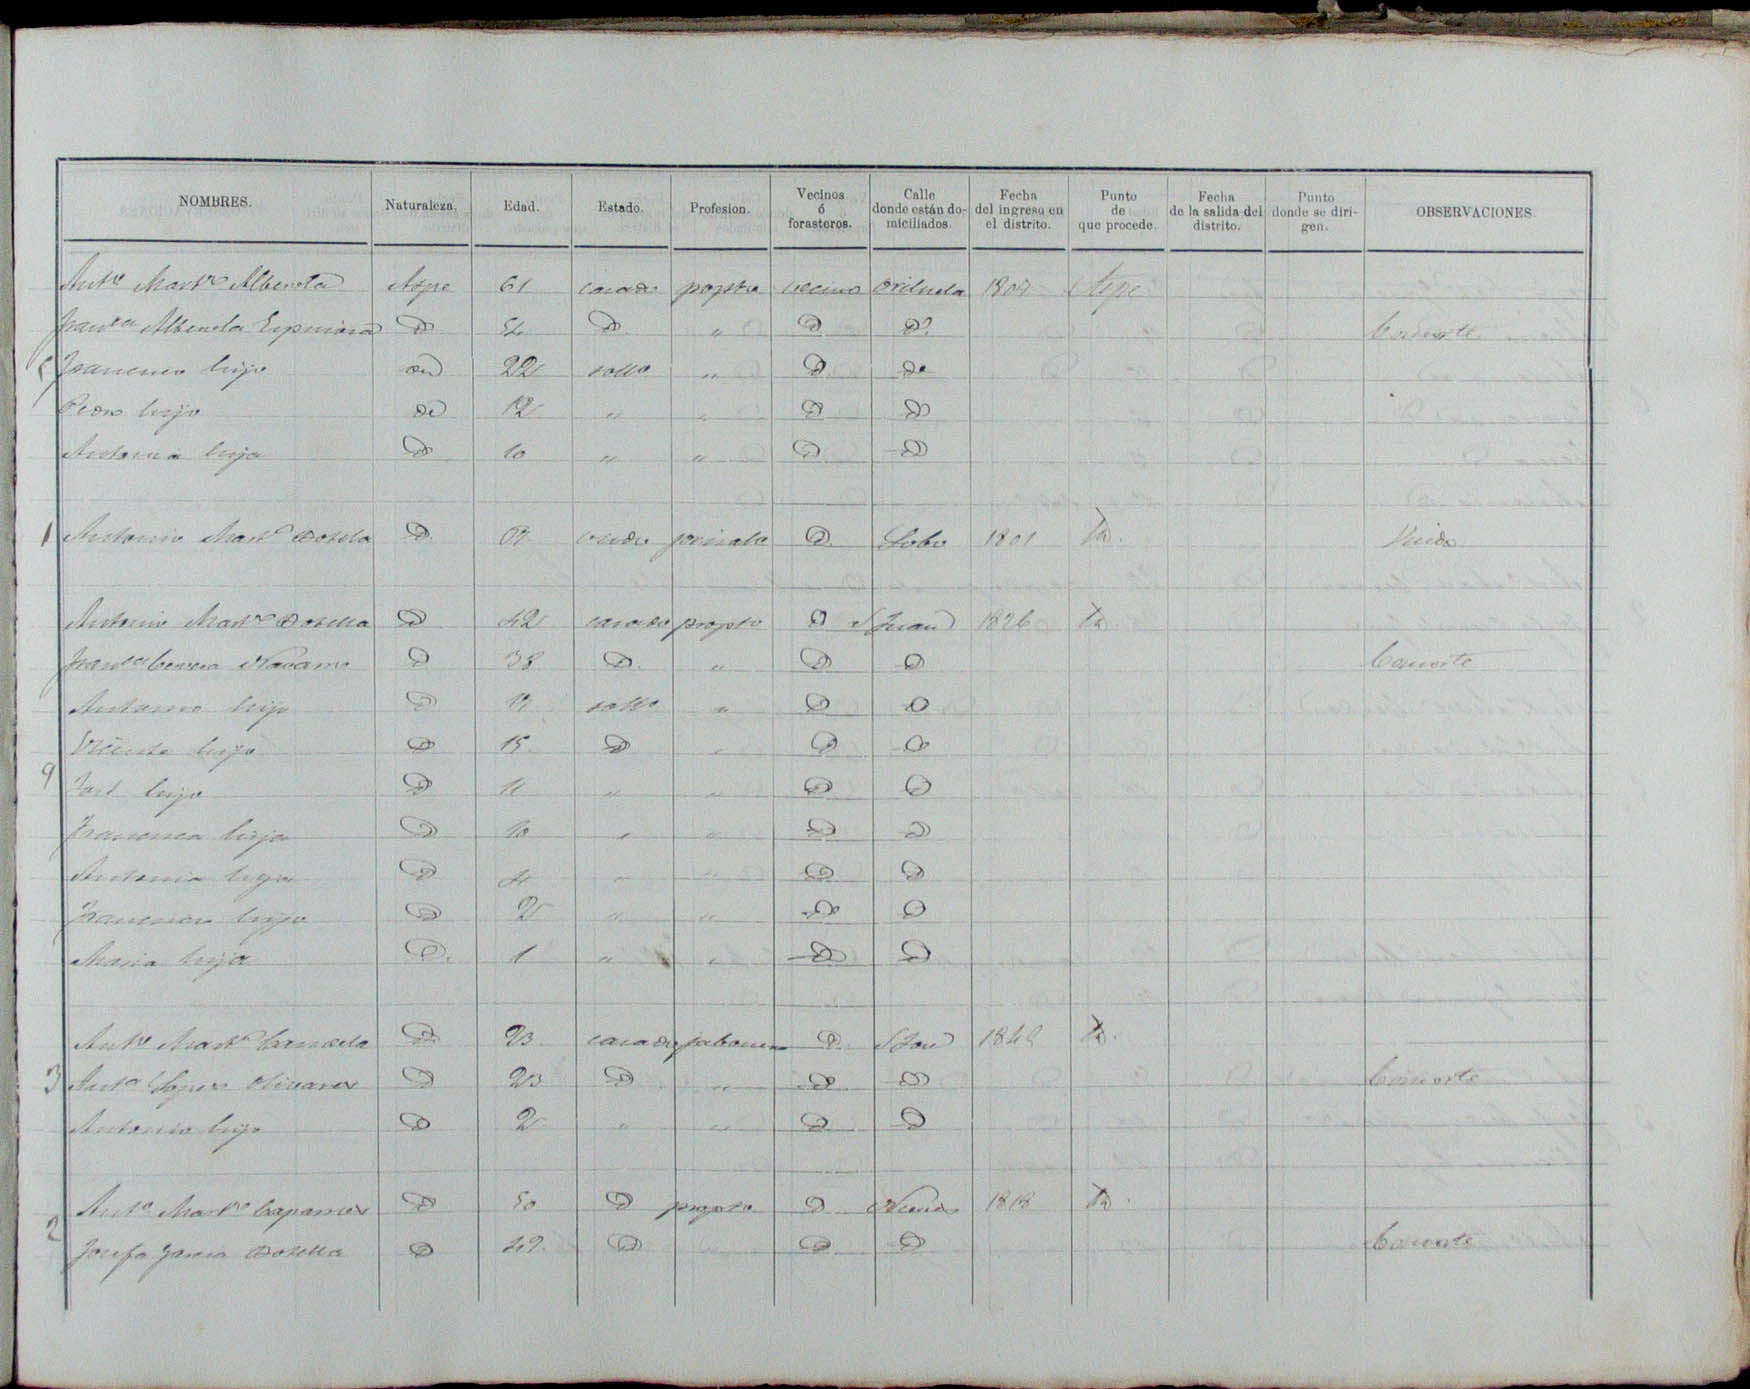 NOMBRES. Naturaleza. Edad. Estado. Profesion. Vecinos ó forasteros. Calle donde están domiciliados. Fecha del ingreso en el distrito. Punto de que procede. Fecha de la salida del distrito. Punto donde se dirigen. OBSERVACIONES.
Antº Martº Albentola Aspe 61 casado vecino Orihuela Aspe
Franca Espinosa D D D Dº Consorte
5 Francisco hijo 22 soltº " D de
Pedro hijo de 12 " " D D
Antonia hija D 10 " " D D
1 Antonio Martº Botela D viudo jornalº D Lobo 1801 Viudo
Antonio Martº Botella D 42 casado proptº D S Juan 1826
Franca Cervera Navarro D 38 D. " D D Consorte
Antonio hijo D soltº " D D
Vicente hijo D 15 D " D D
9 José hijo D 11 " " D D
Francisca hija D 10 " " D D
Antonia hija D 4 " " D D
Francisco hijo D 2 " " D D
Maria hija D. 1 " " D D
Antº Martº Candela D 23 casado jabonero D S José
3 Antª Lopez Olivares D 23 D " D D Consorte
Antonio hijo D 2 " " D D
Antº Martº D 50 D proptº D 1818
2 Josefa Garcia Botella D D " D D Consorte